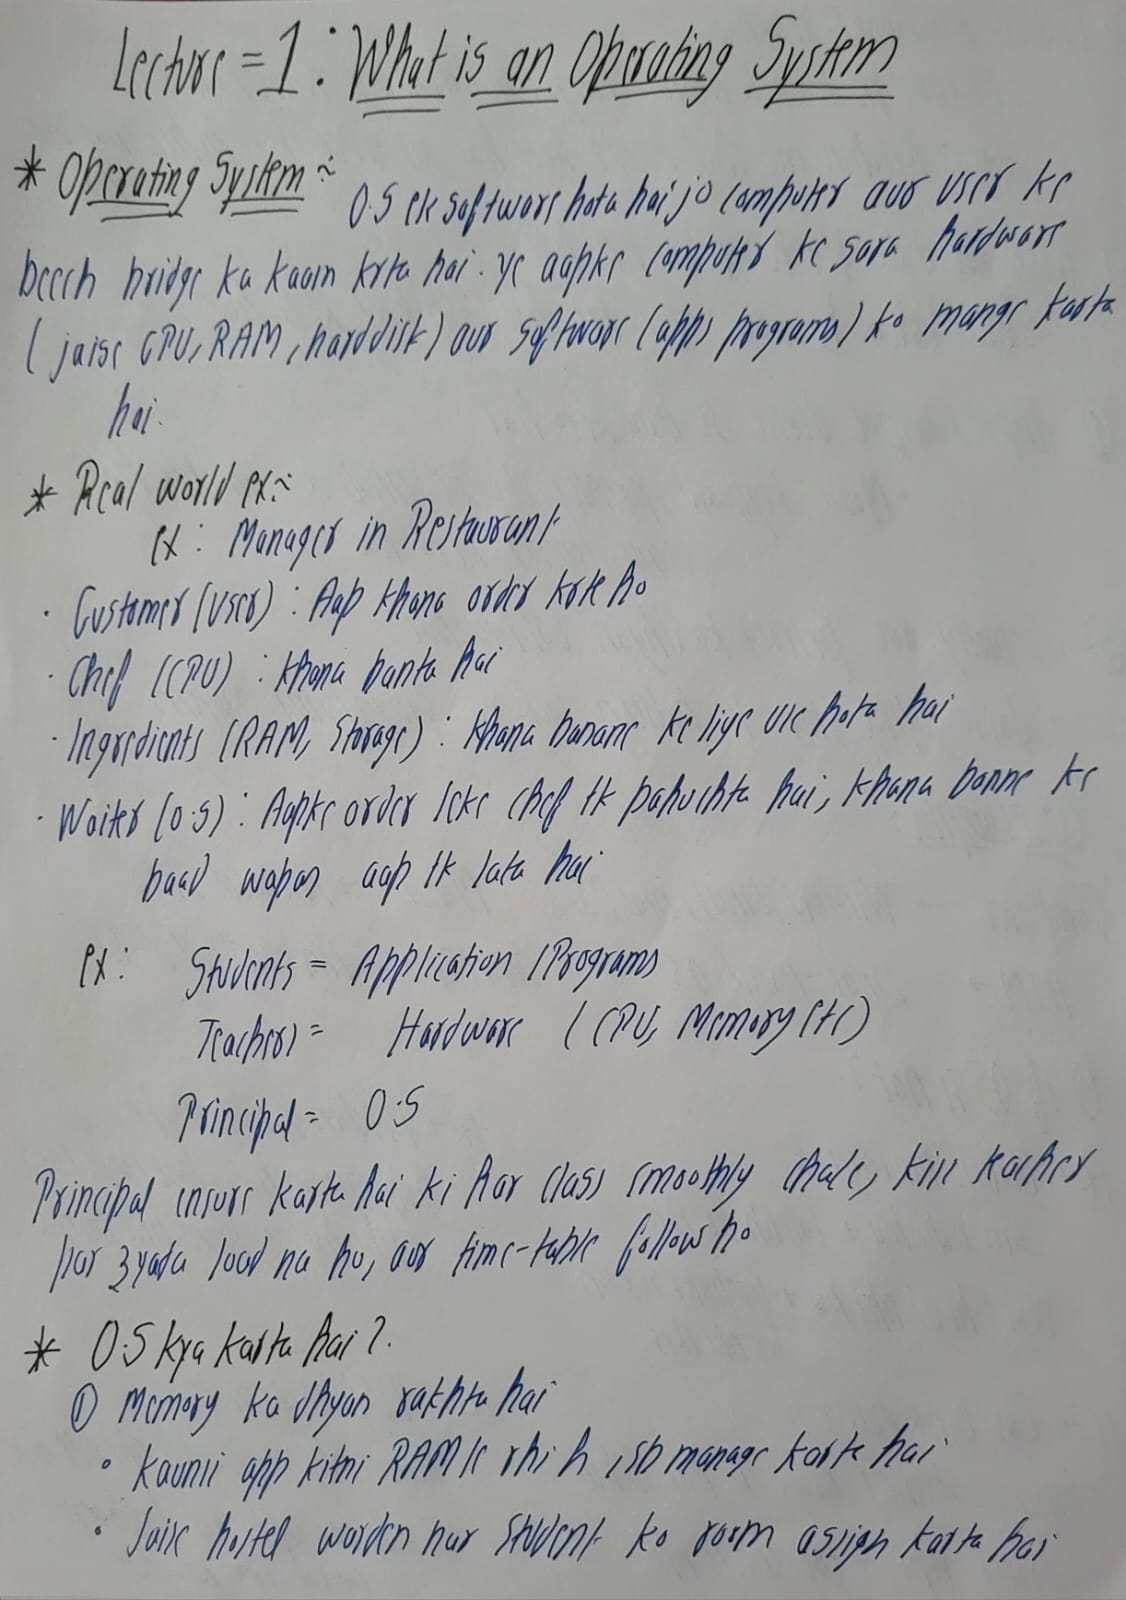 Lecture = 1 : What is an Operating System
* Operating System :-
O.S ek software hota hai jo computer aur user ke
beech bridge ka kaam krta hai. ye aapke computer ke sara hardware
(jaise CPU, RAM, harddisk) aur software (apps programs) ko mange karta
hai.
* Real world ex :-
ex : Manager in Restaurant
· Customer (User) : Aap khana order krte ho
· Chef (CPU) : khana banta hai
· Ingredients (RAM, Storage) : khana banane ke liye use hota hai
· Waiter (O.S) : Aapke order leke chef tk pahuchta hai, khana banne ke
baad wapas aap tk lata hai
ex : Students = Application / Programs
Teachers = Hardware (CPU, Memory etc)
Principal = O.S
Principal ensure karta hai ki har class smoothly chale, kisi teacher
par zyada load na ho, aur time-table follow ho
* O.S kya karta hai ?
① Memory ka dhyan rakhta hai
• kaunsi app kitni RAM le rhi h, sb manage karta hai
• Jaise hostel warden har student ko room assign karta hai